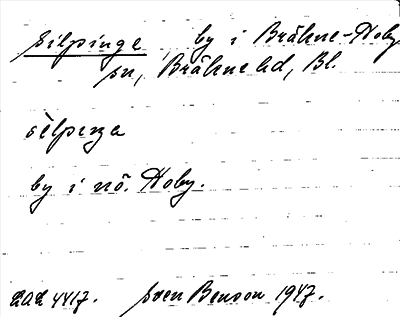 Silpinge by i Bräkne-Hoby
sn, Bräkne hd, Bl.
sìlpeŋa
by i nö. Hoby.
LAL 4417. Sven Benson 1947.